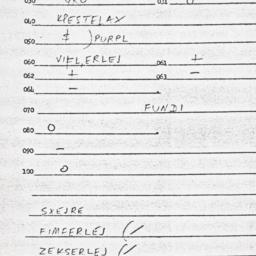 040 KPESTELAX
050 ‡ ) PURPL
060 VIFL, ERLES 061 +
062 + 063 –
064 –
070 FUNDI
080 O
090 –
100 O
SXESRE
FIMFERLEJ (/
ZEKSERLEJ (/